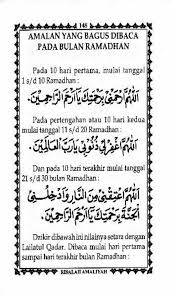 148
AMALAN YANG BAGUS DIBACA
PADA BULAN RAMADHAN
Pada 10 hari pertama, mulai tanggal
1 s/d 10 Ramadhan :
اَللّٰهُمَّ ارْحَمْنِيْ بِرَحْمَتِكَ يَاۤاَرْحَمَ الرَّاحِمِيْنَ.
Pada pertengahan atau 10 hari kedua
mulai tanggal 11 s/d 20 Ramadhan :
اَللّٰهُمَّ اغْفِرْ لِيْ ذُنُوْبِيْ يَارَبَّ الْعَالَمِيْنَ.
Dan pada 10 hari terakhir mulai tanggal
21 s/d 30 bulan Ramadhan :
اَللّٰهُمَّ اَعْتِقْنِيْ مِنَ النَّارِ وَاَدْخِلْنِيْ
الْجَنَّةَ بِرَحْمَتِكَ يَاۤاَرْحَمَ الرَّاحِمِيْنَ.
Dzikir dibawah ini nilainya setara dengan
Lailatul Qadar. Dibaca mulai hari pertama
sampai hari terakhir bulan Ramadhan :
RISALAH AMALIYAH